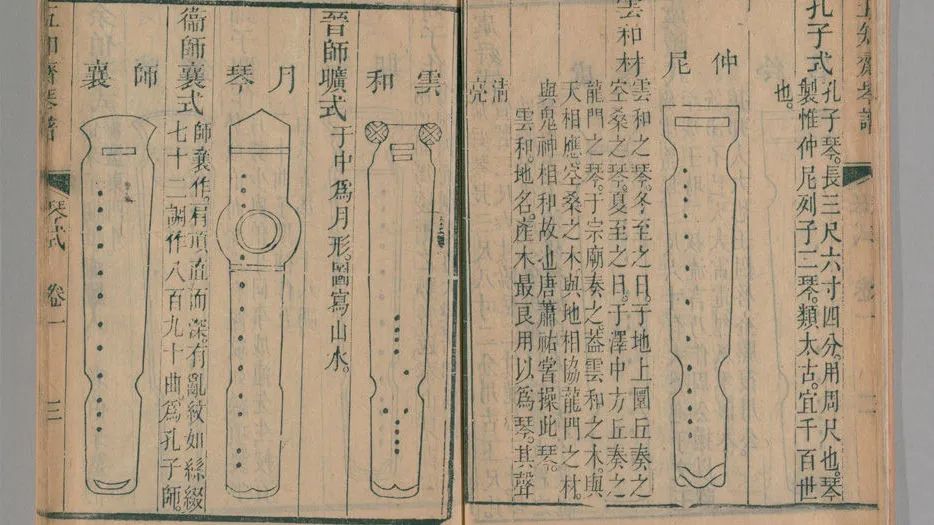 五知齋琴譜
孔子式
孔子琴。長三尺六寸四分。用周尺也。琴
製惟仲尼列子二琴。類太古。宜千百世
也。
仲尼
雲和材
雲和之琴。冬至之日。于地上圜丘奏之
空桑之琴。夏至之日。于澤中方丘奏之
龍門之琴。于宗廟奏之。蓋雲和之木。與
天相應。空桑之木。與地相協。龍門之材。
與鬼神相和故也。唐蕭祐嘗操此琴。
雲和。地名。產木最良。用以爲琴。其聲
清亮
雲和
晉師曠式
于中爲月形。圖寫山水。
月琴
衞師襄式
師襄作。肩頂直而深。有亂紋如絲綴
七十二調。作八百九十曲。爲孔子師。
師襄
五知齋琴譜 琴式 卷一 三